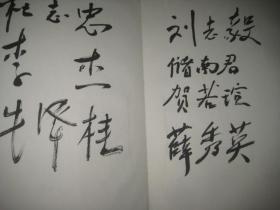 杜志忠
李杰
牛泽桂
刘志毅
储南君
贺若瑄
薛秀英